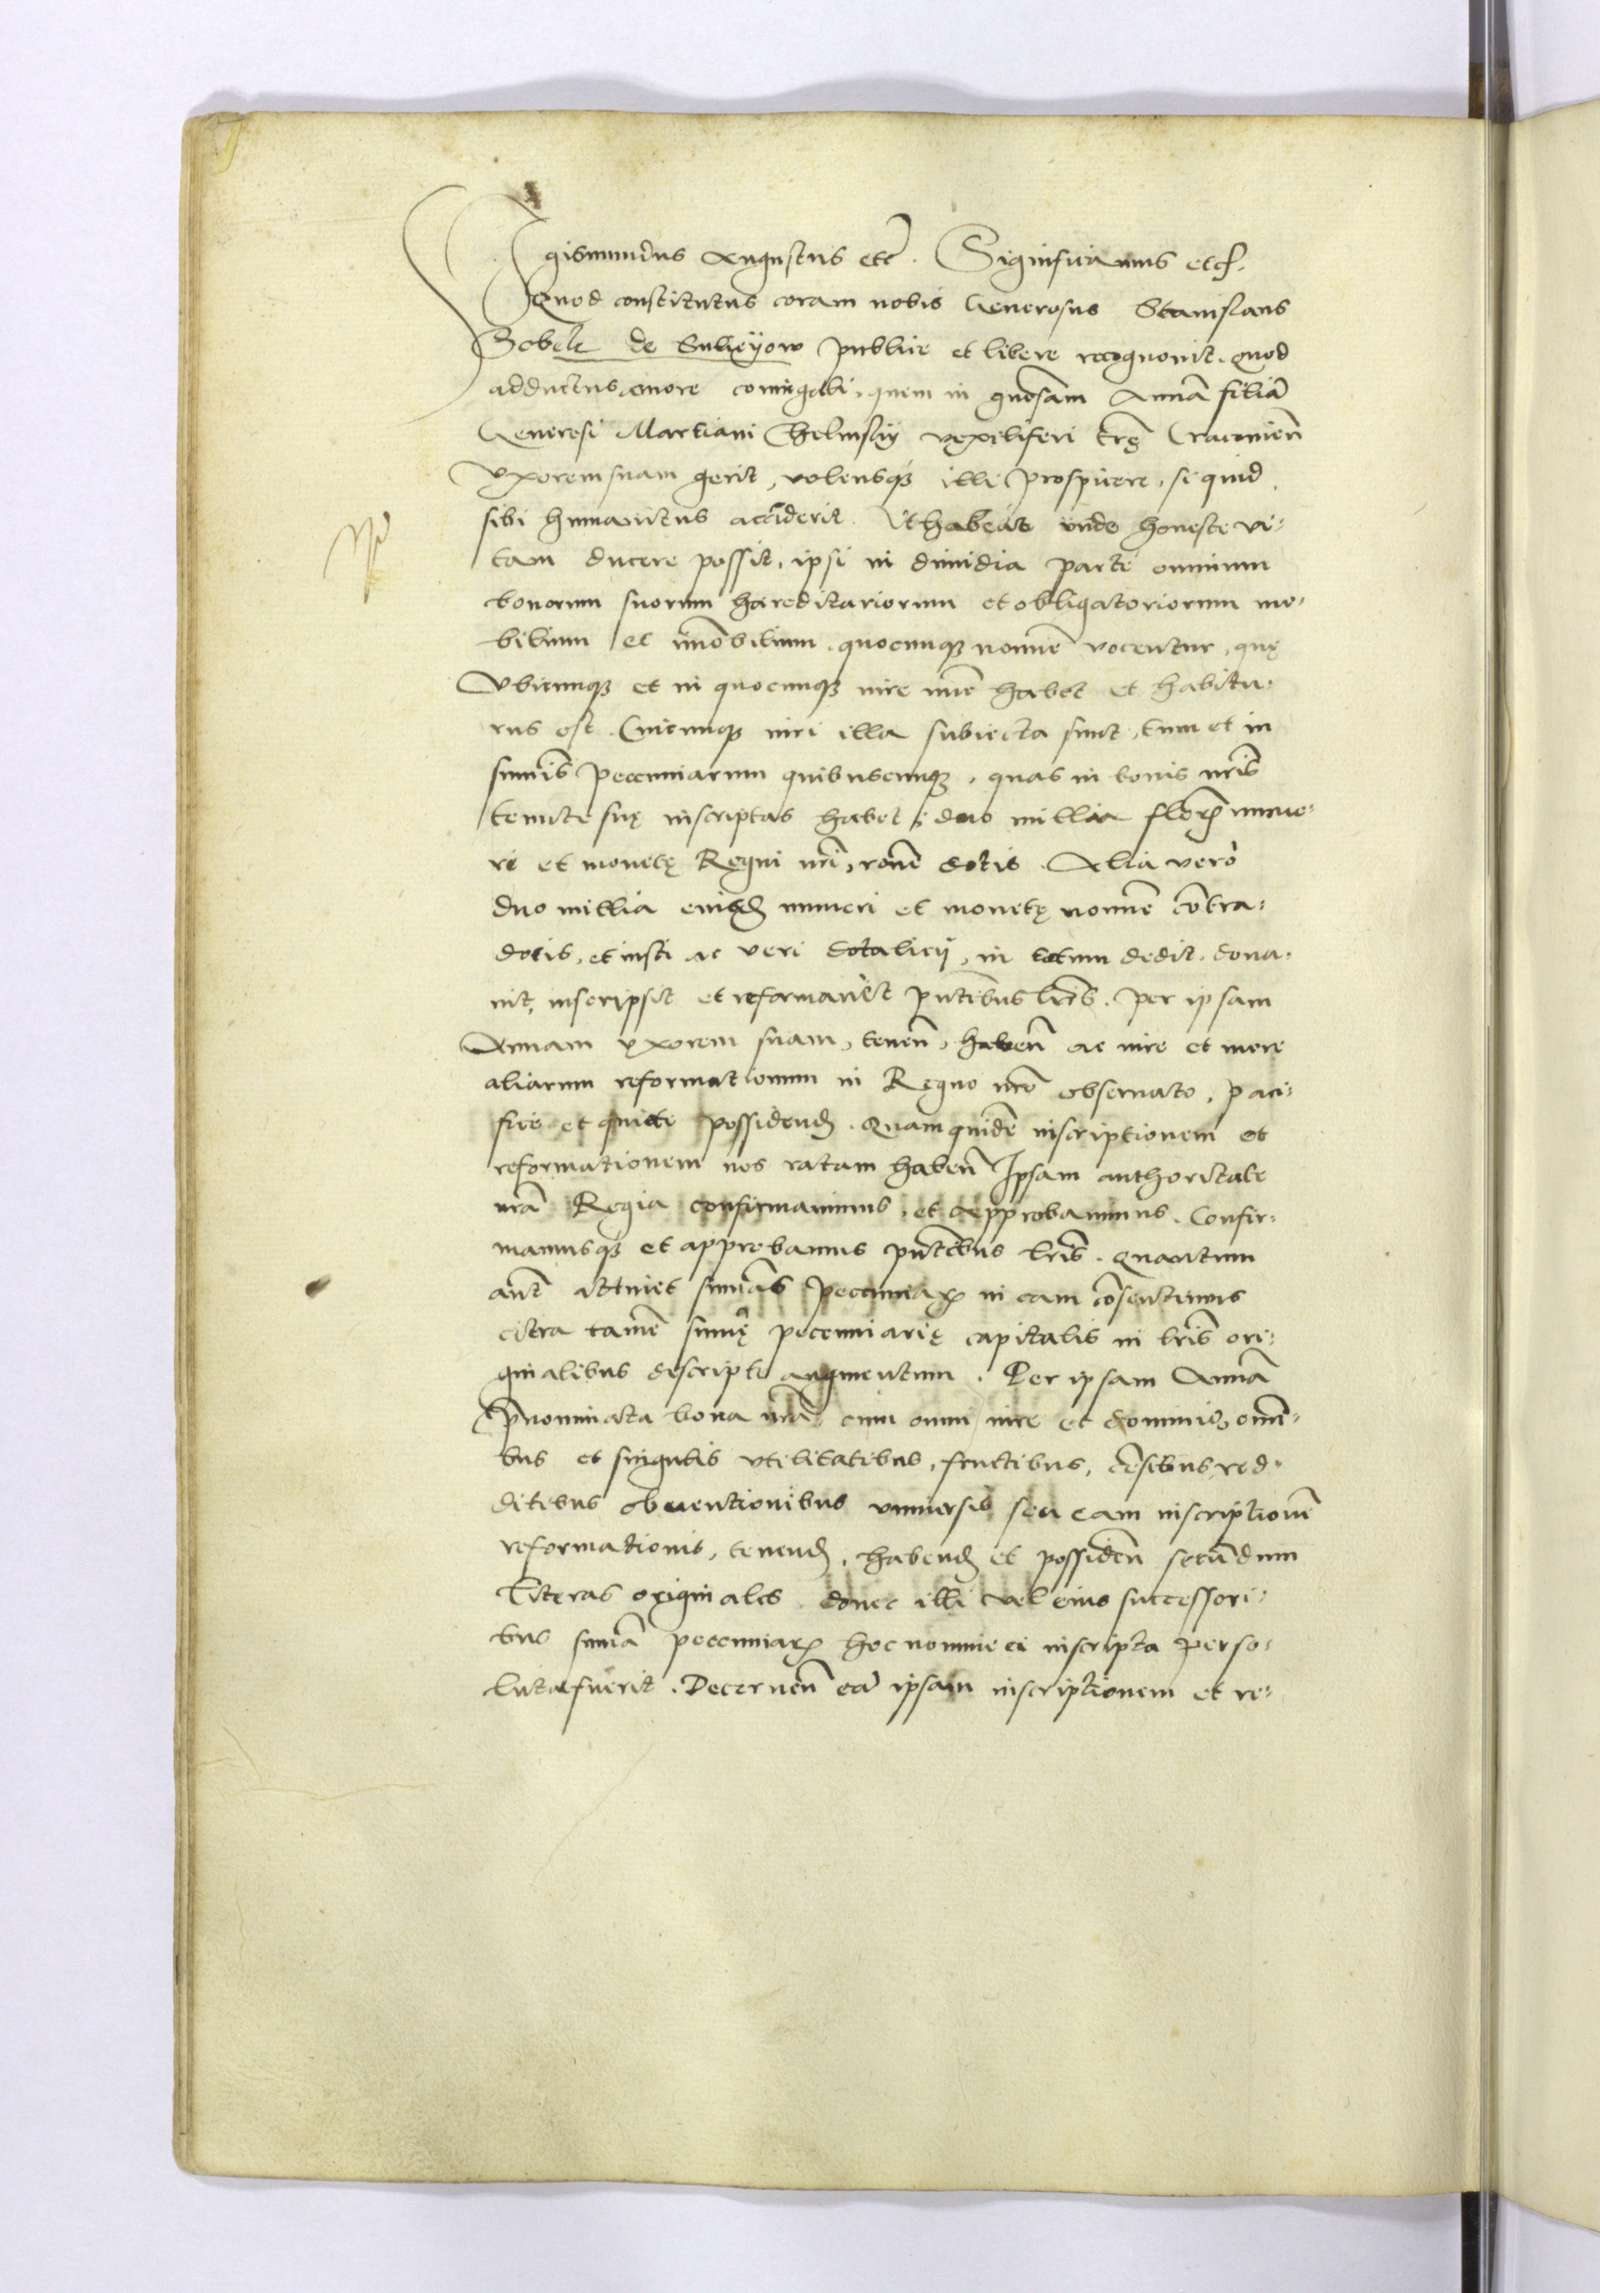 Sigismundus Augustus etc̄. Significamus etc.
Quod constitutus coram nobis Generosus Stanislaus
Sobek de Sulieyow publice et libere recognouit. Quod
adductus amore coniugali, quem in gnōsam Annā filiā
Generosi Martiani Chelmsky vexiliferi trę̄ Cracouien̄
vxorem suam gerit, volensq́ꝫ illi prospicere, si quid
sibi humanitus acciderit. Vt habeat unde honeste vi-
tam ducere possit, ipsi in dimidia parte omnium
bonorum suorum hæreditariorum et obligatoriorum mo-
bilium et im̄obilium. quocunqꝫ nomine vocentur, quę
Vbicunqꝫ et in quocunqꝫ iure nunc habet et habitu-
rus est. Cuicunqꝫ iuri illa subiecta sint, tum et in
sum̄is pecuniarum quibuscunqꝫ, quas in bonis nr̄is
tenutę suę inscriptas habet, duo millia floren̄ nume-
ri et monetę Regni nr̄i, rōne dotis. Alia vero
duo millia eiusdꝫ numeri et monetę nomine cōtra-
dotis, et iusti ac veri dotalicij, in totum dedit, dona-
uit, inscripsit et reformauit pn̄tibus lr̄is. per ipsam
Annam vxorem suam, tenen̄, haben̄ ac iure et more
aliarum reformationum in Regno nr̄o obseruato, paci-
fice et quiete possidendꝫ. Quam quidē inscriptionem et
reformationem nos ratam haben̄ Ipsam authoritate
nr̄a Regia confirmauimus, et approbauimus. Confir-
mamusqꝫ et approbamus pn̄tibus lr̄is. Quantum
aūt attinet sum̄as pecuniaꝝ in eam cōsentimus
citra tamē sum̄ę pecuniarię capitalis in lr̄is ori-
ginalibus descripte augmentum. Per ipsam Annā
prēnominata bona nr̄a cum omni iure et dominio, omni-
bus et singulis vtilitatibus, fructibus, cēsibus, red-
ditibus obuentionibus vniuersis seu eam inscriptionē
reformationis, tenendꝫ, habendꝫ et possiden̄ secundum
literas originales donec illi vel eius successori-
bus sum̄a pecuniaꝝ hoc nomine ei inscripta perso-
luta fuerit. Decernen̄ eā ipsam inscriptionem et re-